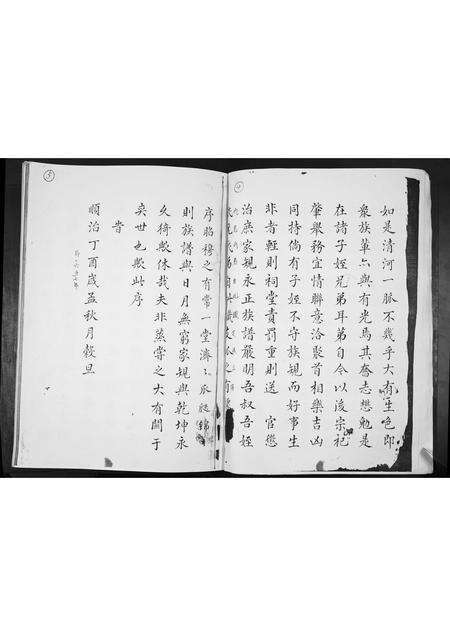 4
如是清河一脉不幾乎大有生色即
衆族華亦與有光焉其奮志懋勉是
在諸子姪兄弟耳弟自今以後宗祀
肇舉務宜情聯意洽聚首相樂吉凶
同持倘有子姪不守族規而好事生
非者輕則祠堂責罰重則送 官懲
治庶家規永正族譜嚴明吾叔吾姪
5
序昭穆之有常一堂濟濟瓜瓞綿
則族譜與日月無窮家規與乾坤永
久猗歟休哉夫非蒸嘗之大有關于
奕世也歟此序
旹
順治丁酉歲孟秋月穀旦